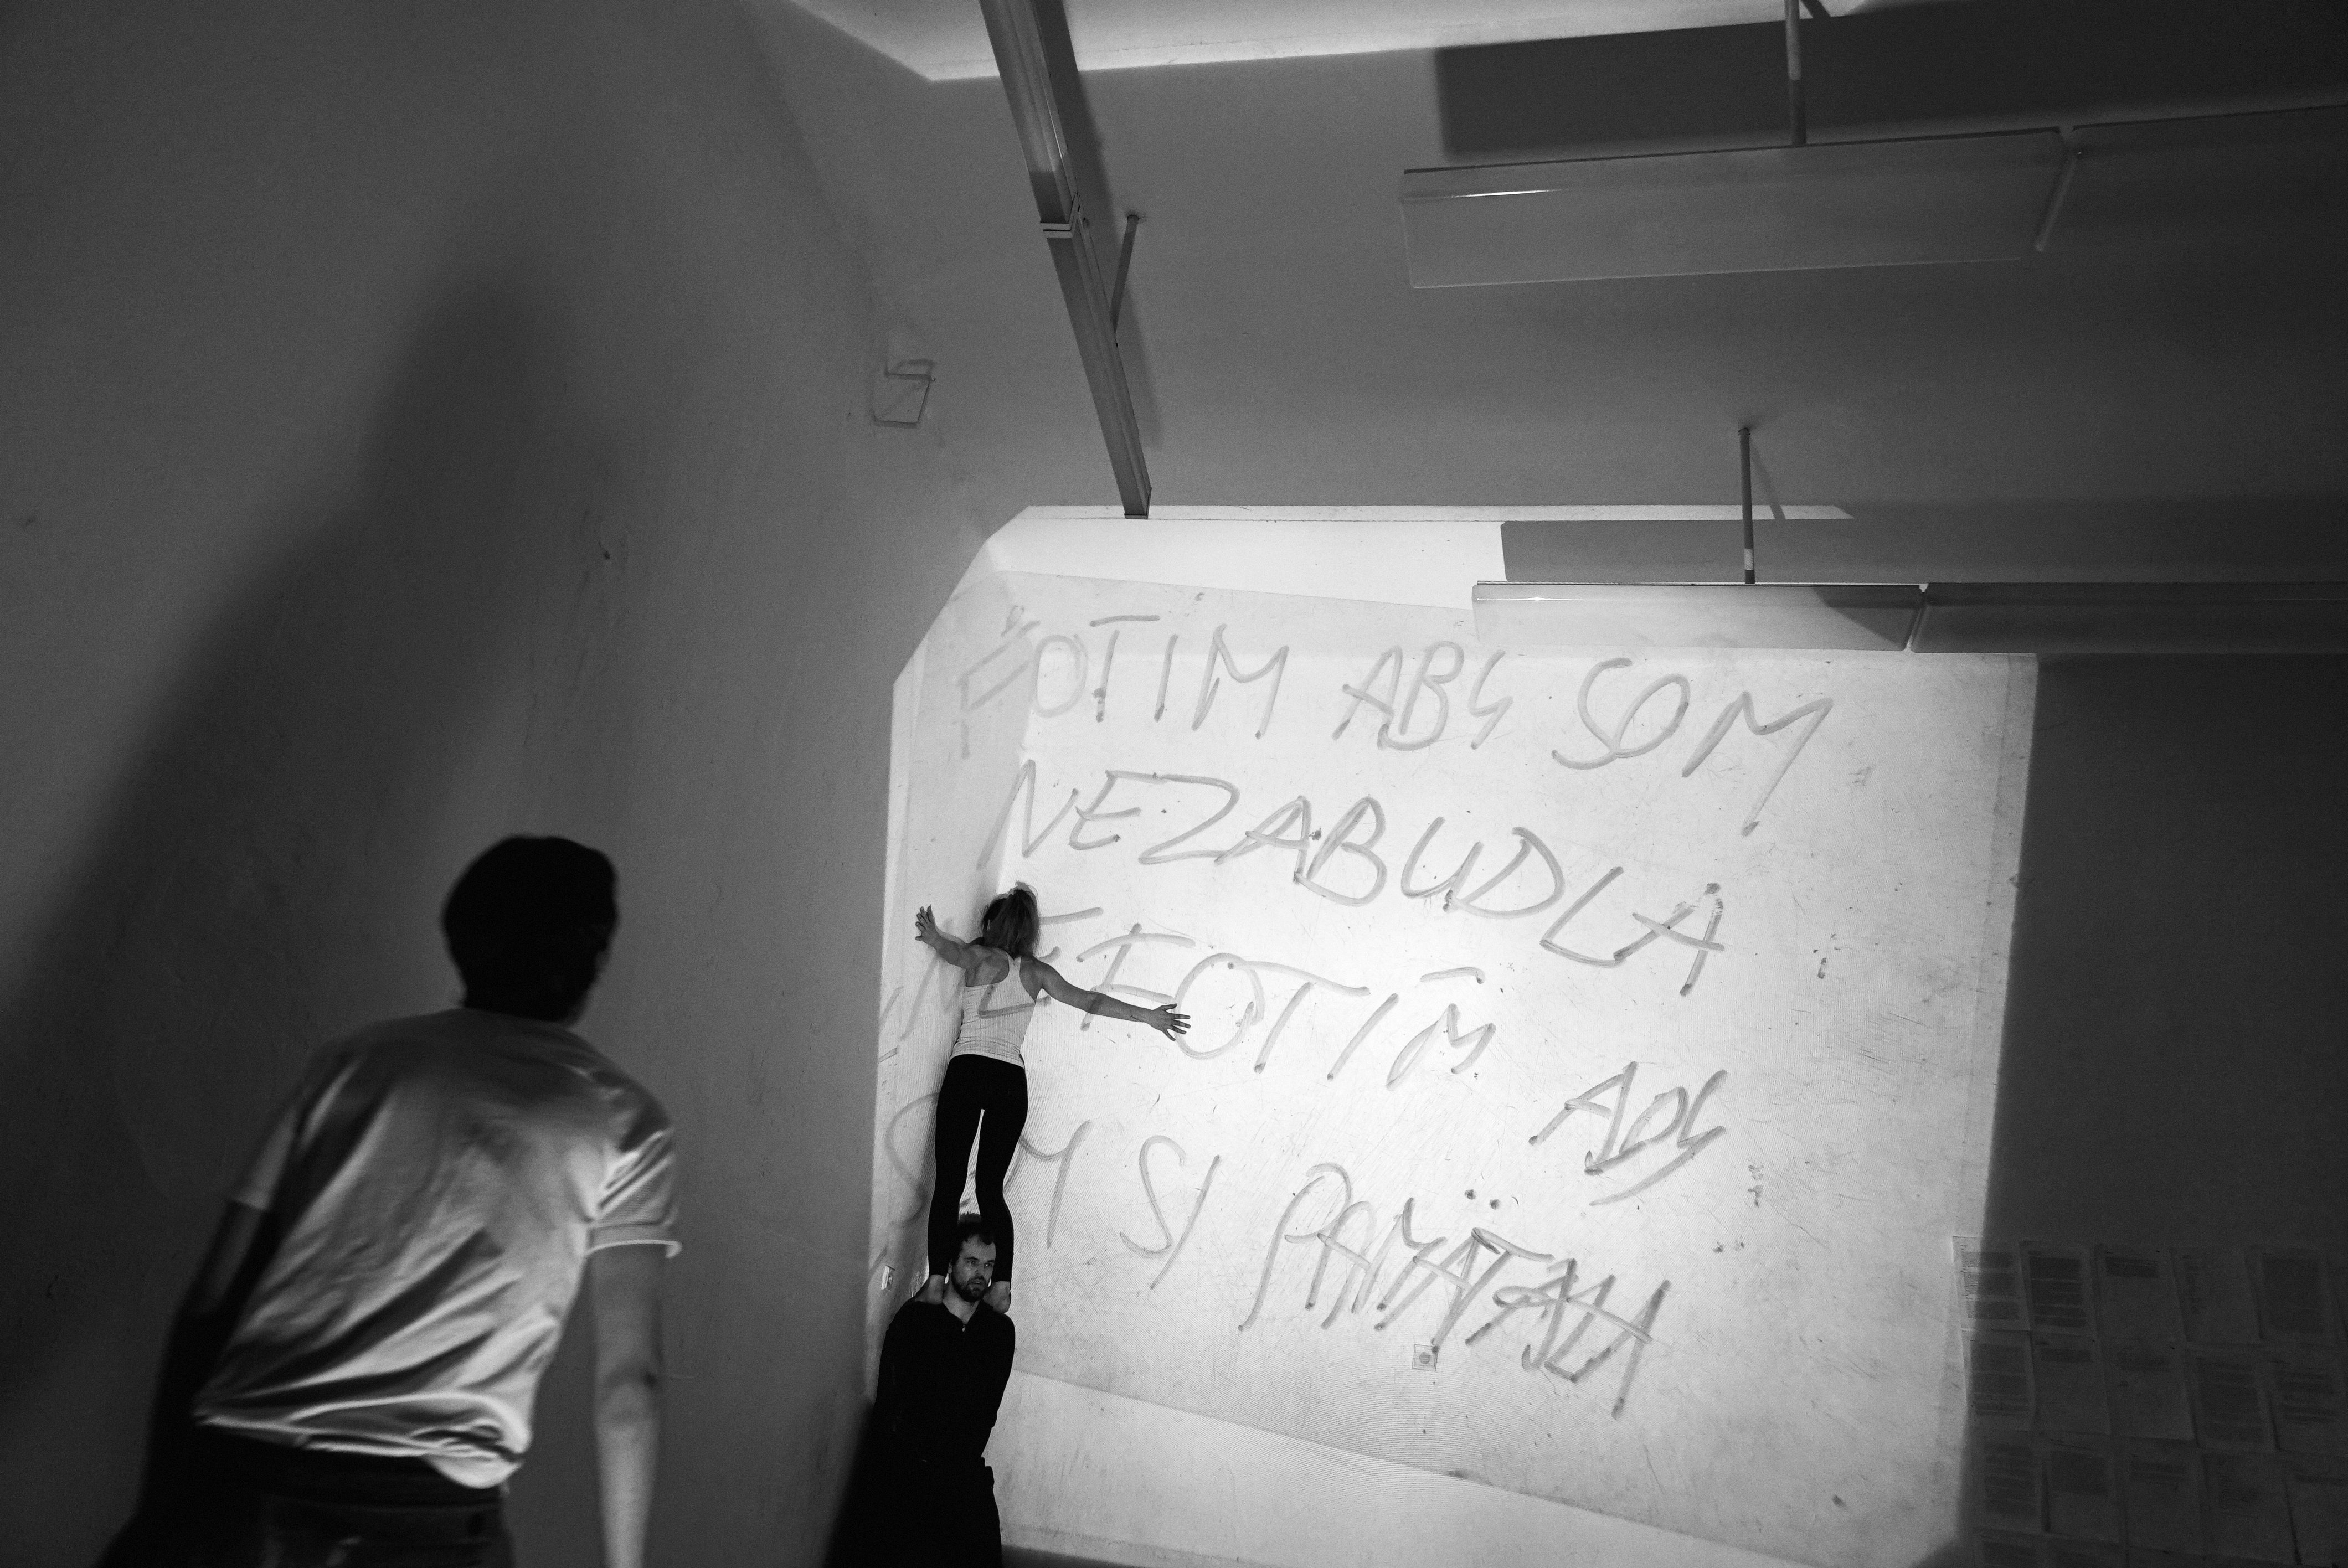 FOTÍM ABY SOM
NEZABUDLA
NEFOTÍM ABY
SOM SI PAMÄTALA